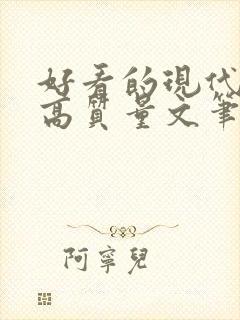 好看的現代
高質量文筆
阿寧兒